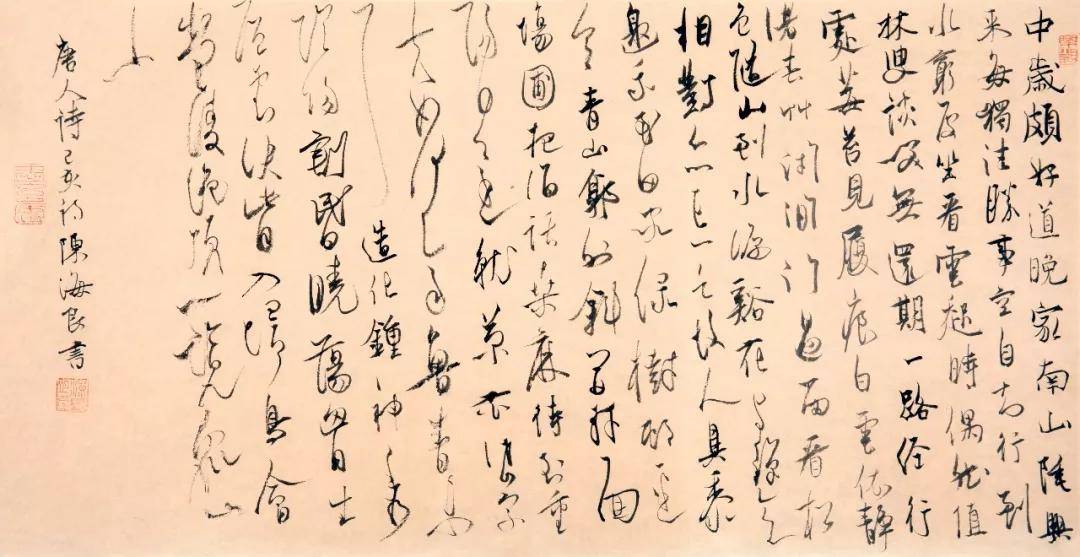 中歲頗好道晚家南山陲興
来每獨往勝事空自知行到
水窮處坐看雲起時偶然值
林叟談笑無還期一路經行
處莓苔見履痕白雲依靜
渚春艸閉閒門過雨看松
色隨山到水源谿花与禪意
相對亦忘言故人具雞黍
邀我至田家綠樹邨邊
合青山郭外斜開軒面
場圃把酒話桑麻待到重
陽日還来就菊花岱宗
夫如何齊魯青未
了造化鍾神秀
陰陽割昏曉蕩胸生
層雲決眥入歸鳥會
當凌絕頂一覽衆山
小
唐人詩己亥初陳海良書